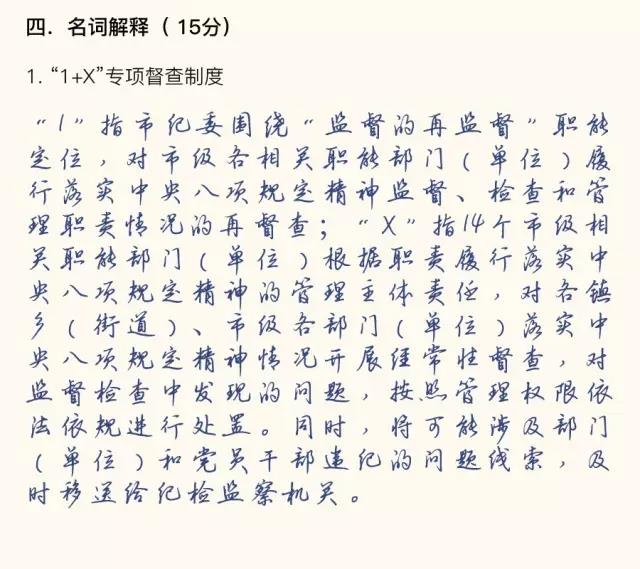 四. 名词解释（15分）
1. “1+X”专项督查制度
“1”指市纪委围绕“监督的再监督”职能
定位，对市级各相关职能部门（单位）履
行落实中央八项规定精神监督、检查和管
理职责情况的再督查；“X”指14个市级相
关职能部门（单位）根据职责履行落实中
央八项规定精神的管理主体责任，对各镇
乡（街道）、市级各部门（单位）落实中
央八项规定精神情况开展经常性督查，对
监督检查中发现的问题，按照管理权限依
法依规进行处置。同时，将可能涉及部门
（单位）和党员干部违纪的问题线索，及
时移送给纪检监察机关。